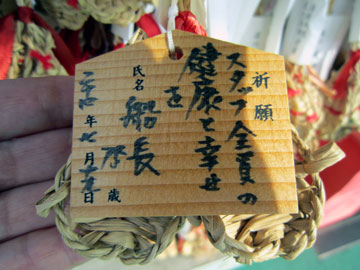 祈願
スタッフ全員の
健康と幸せ
を
氏名 船長
歳
年七月十五日